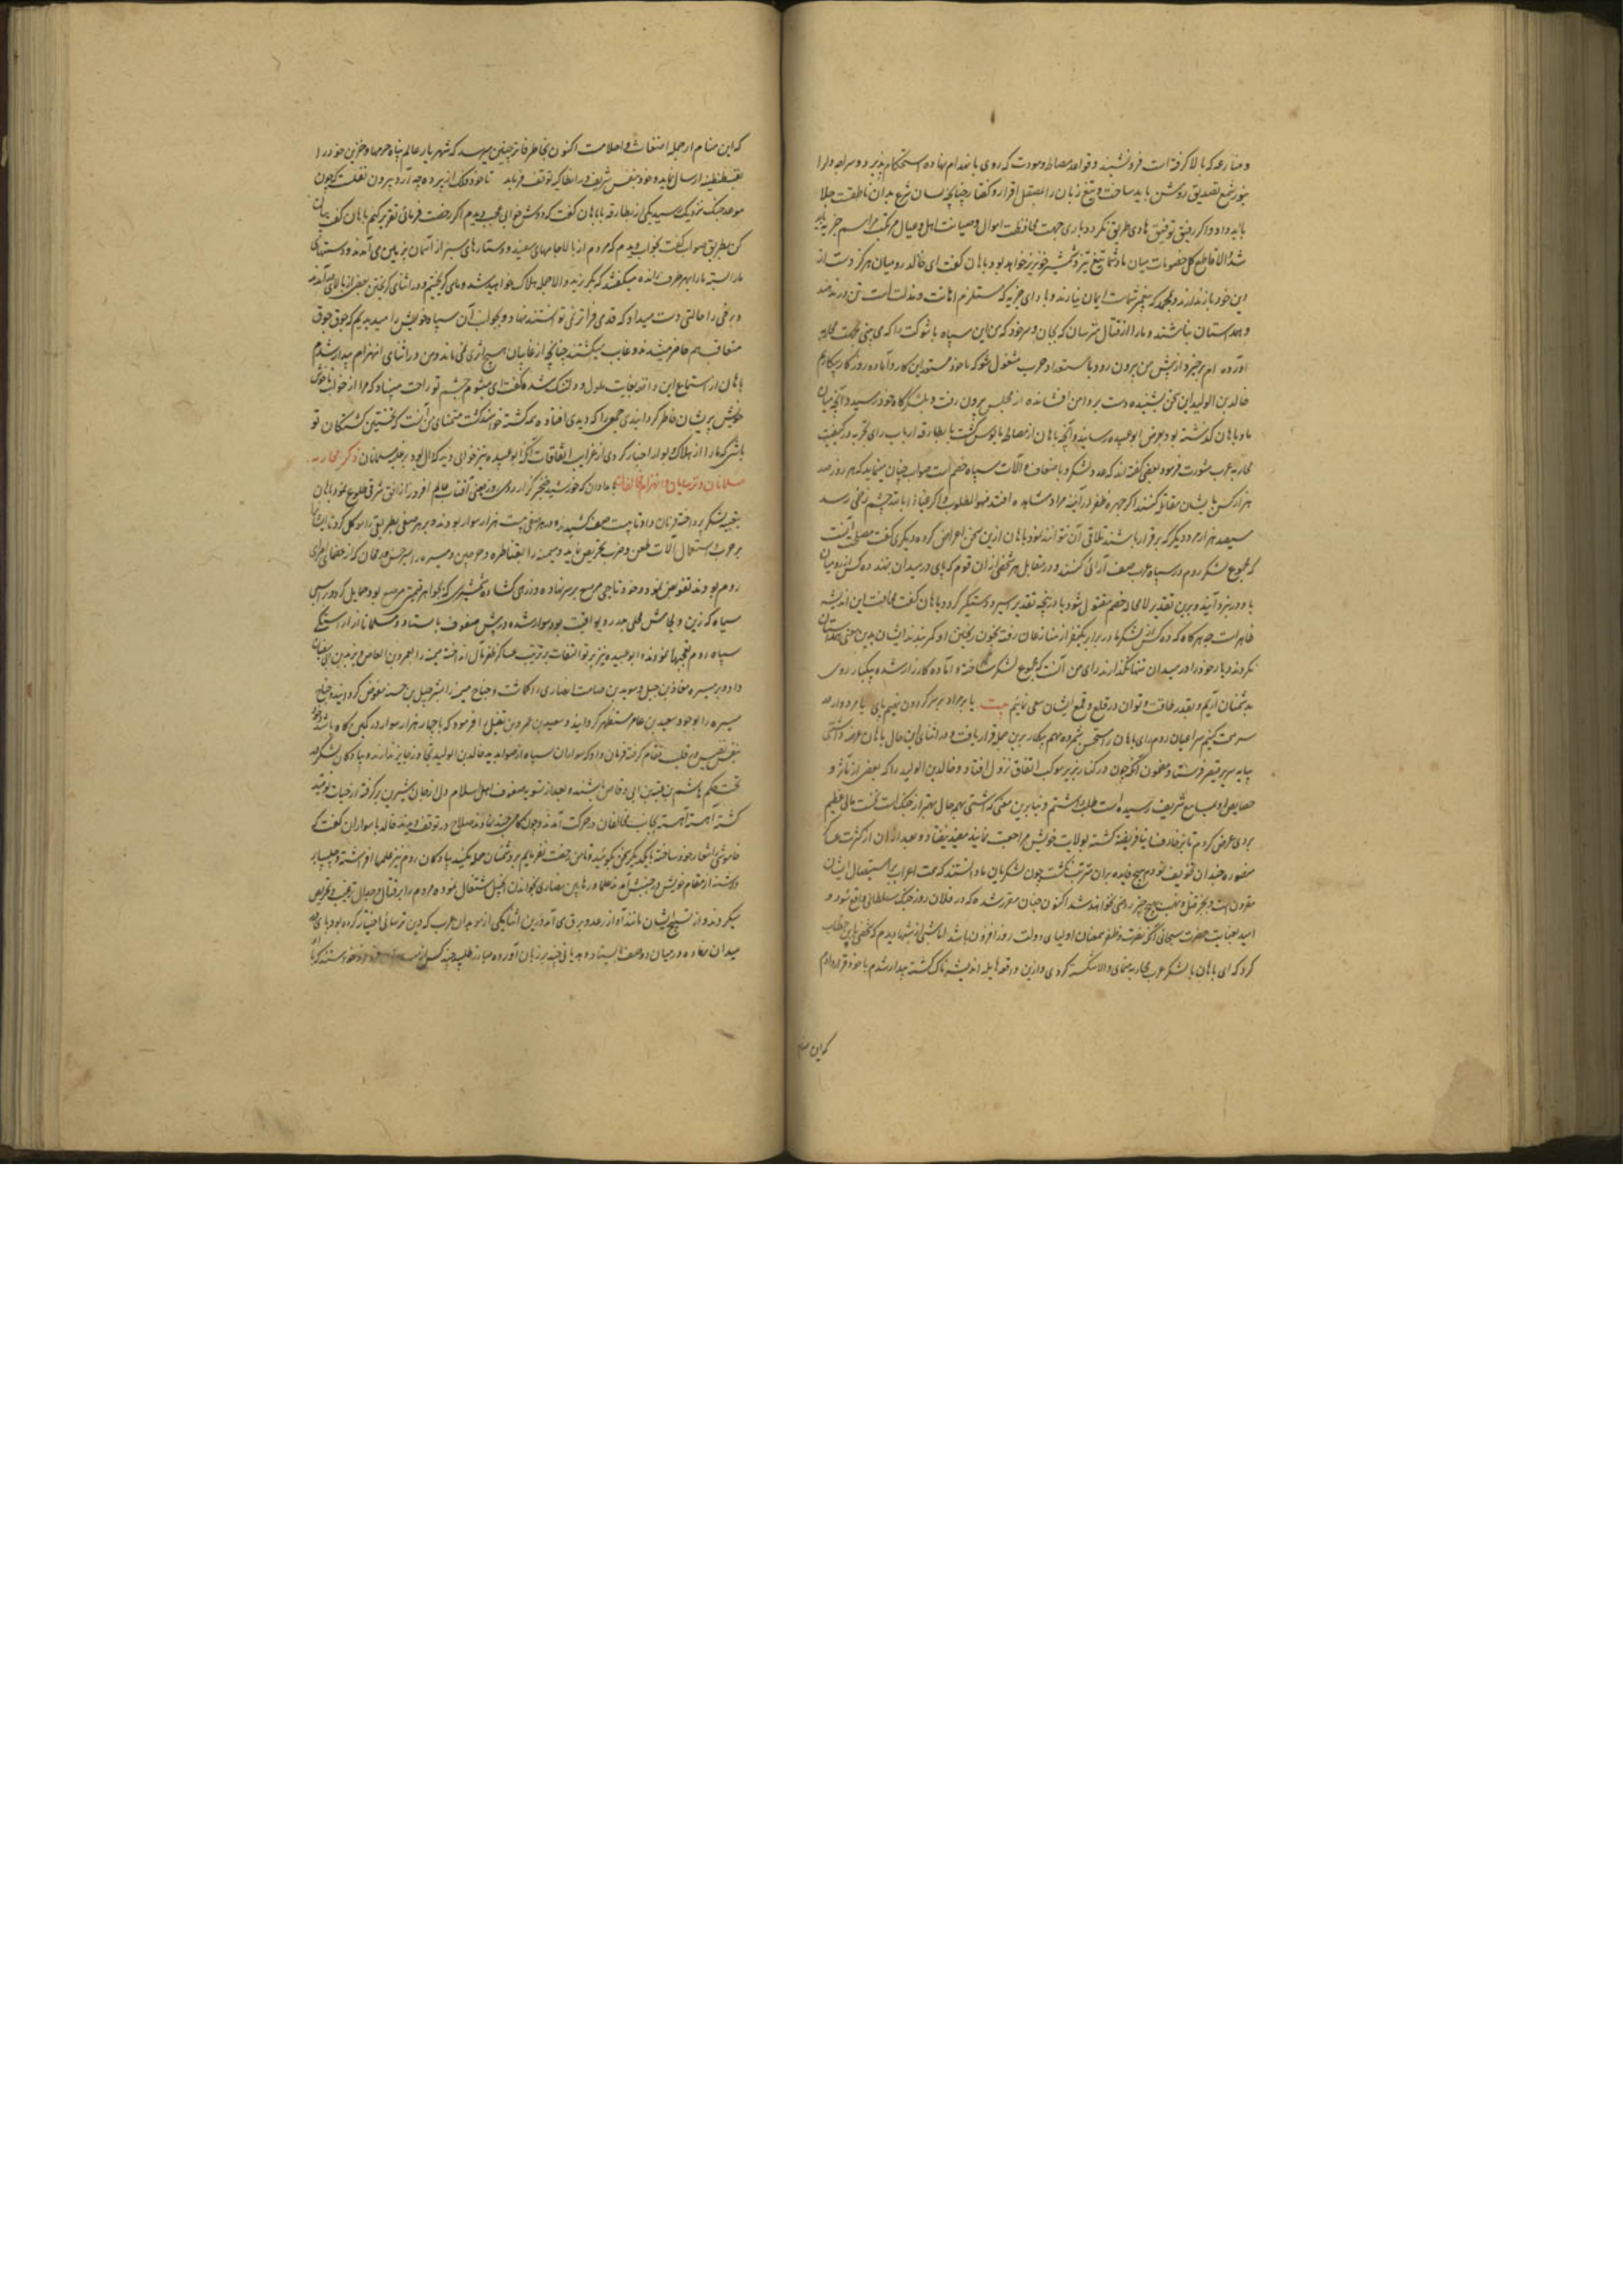 و منازعه که بالا گرفته است فرو نشیند و قواعد مصالحه و مودت که روی بانهدام نهاده استحکام پذیرد و سراچه دل را
بنور شمع تصدیق روشن باید ساخت و تیغ زبان را بمصقل اقرار و گفتار چنانچه لسان شرع بدان ناطقست جلا
باید داد و اگر رفیق توفیق هادی طریق نگردد باری جهت محافظت اموال و صیانت اهل و عیال مراسم جزیه باید
شد والا قاطع کل خصومات میان ما و شما تیغ تیز و شمشیر خونریز خواهد بود باهان گفت ای خالد رومیان هرگز دست از
این خود باز ندارند و بمجرد که پیغمبر شماست ایمان نیارند و بادای جزیه که مستلزم اهانت و مذلت است تن درندهند
و همداستان نباشند و ما را از قتال مترسان که بجان و سر خود که من این سپاه با شوکت را که می بینی جهت محاربه
آورده ام برخیز و از پیش من بیرون رو و باستعداد حرب مشغول شو که ما خود مستعد این کار و آماده روز کارزاریم
خالد بن الولید این سخن بشنیده دست برو دامن افشانده از مجلس بیرون رفت و بلشکرگاه خود رسید و آنچه میان
او و باهان گذشته بود بعرض ابو عبیده رسانید و آنچه باهان از مصالحه مایوس گشت با بطارقه ارباب رای تجربه در کیفیت
محاربه عرب مشورت فرمود بعضی گفته اند که عدد لشکر ما باضعاف و آلات سپاه خصم است صواب چنان مینماید که هر روز صد
هزار کس با ایشان مقاتله کنند اگر چهره ظفر در آینه مراد مشاهده افتد فهو المطلوب و اگر عیاذا بالله چشم زخمی رسد
سیصد هزار مرد دیگر که برقرار باشند تلافی آن توانند نمود باهان ازین سخن اعراض کرده دیگری گفت مصلحت آنست
که مجموع لشکر روم در سپاه عرب صف آرائی کنند و در مقابل هر شخصی از آن قوم که پای در میدان نهند ده کس از رومیان
با او در نبرد آیند و برین تقدیر لامحاله خصم مقتول شود یا در پنجه تقدیر اسیر و دستگیر گردد باهان گفت مخافت این اندیشه
ظاهر است چه هرگاه که ده کس از لشکر ما در برابر یکنفر از منازعان رفته بخون ریختن او کمر بندند ایشان بدین معنی همداستان
نگردند و یار خود را در میدان تنها نگذارند رای من آنست که مجموع لشکر ساخته و آماده کارزار شده بیکبار روی
بدشمنان آریم و بقدر طاقت و توان در قلع و قمع ایشان سعی نمائیم بیت یا بر مراد بر سر گردون نهیم پای یا مردوار در
سر همت کنیم سر اعیان روم رای باهان را مستحسن شمرده مهم پیکار برین جمله قرار یافت و در اثنای این حال باهان عرضه داشتی
بپایه سریر قیصر فرستاد مضمون آنکه چون در کنار یرموک اتفاق نزول افتاد و خالد بن الولید را که بعضی از مآثر و
خصایص او بمسامع شریف رسیده است طلب داشتم و بنابرین معنی که آشتی بهمه حال بهتر از جنگ است نخست مالی عظیم
بروی عرض کردم تا بزخارف دنیا فریفته گشته بولایت خویش مراجعت نماید مفید نیفتاد و بعد از آن از کثرت عساکر
منصوره چندان تخویف نمودم هیچ فایده بران مترتب نگشت چون لشکریان ما دانستند که همت اعراب بر استیصال ایشان
مقرون است و بجز قتل و نهب بهیچ چیز راضی نخواهند شد اکنون چنان مقرر شده که در فلان روز جنگ سلطانی واقع شود و
امید بعنایت حضرت سبحانی آنکه نصرت و ظفر همعنان اولیای دولت روز افزون باشد اما شبی از شبها دیدم که شخصی با من خطاب
کرد که ای باهان با لشکر عرب محاربه منمای والا شکسته گردی و ازین واقعه هایله اندیشه ناک گشته بیدار شدم با خود قرار دادم
که این منام
که این منام از جمله اضغاث و احلامست اکنون بخاطر فاتر چنین میرسد که شهریار عالم پناه حرمها و خزاین خود را
بقسطنطنیه ارسال نماید و خود بنفس شریف در انطاکیه توقف فرماید تا خود فلک از پس پرده چه آرد بیرون نقلست که چون
موعد جنگ نزدیک رسید یکی از بطارقه با باهان گفت که دوش خوابی عجب دیدم اگر رخصت فرمائی تقریر کنم باهان گفت بیان
کن بطریق صواب گفت بخواب دیدم که مردم از بالا جامهای سفید و دستارهای سبز از آسمان بزمین می آمدند و دستهای
ما را بسته ما را بهر طرف رانده میگفتند که بگریزید والا جمله هلاک خواهید شد و ما می گریختیم و در اثنای گریختن بعضی از ما بالای آمدند
و برخی را حالتی دست میداد که قدمی فراتر نمی توانستند نهاد و بخواب آن سپاه خویش را میدیدیم که جوق جوق
متعاقب هم حاضر میشدند و غایب میگشتند چنانچه از غایبان هیچ اثری نمی ماند و من در اثنای انهزام بیدار شدم
باهان از استماع این واقعه بغایت ملول و دلتنگ شده گفت ای میشوم چشم تو راحت مبیناد که مرا از خواب ناخوش
خویش پریشان خاطر گردانیدی جمعی را که دیدی افتاده همه کشته خواهند گشت متمنای من آنست که نخستین کشتگان تو
باشی که ما را از هلاک و بوار اخبار کردی از غرایب اتفاقات آنکه ابو عبیده نیز خوابی دید که دال بود بر غلبه مسلمانان ذکر محاربه
مسلمانان و ترسایان و انهزام مخالفان بامدادان که خورشید خنجر گزار روی روز یعنی آفتاب عالم افروز از افق شرقی طلوع نمود باهان
بتعبیه لشکر پرداخته فرمان داد تا بیست صف کشیدند و در هر صفی بیست هزار سوار بودند و بر هر صفی بطریقی را موکل گردانید تا ایشان را
بر حرب و استعمال آلات طعن و ضرب تحریص نماید و میمنه را بقناطره و جرجین و میسره را که از عظمای امرای
روم بودند تفویض نمود و خود تاجی مرصع بر سر نهاده و زرهی گشاده شمشیری که بجواهر قیمتی مرصع بود حمایل کرد و بر اسبی
سیاه که زین و لجامش محلی بدر و یواقیت بود سوار شده در پیش صفوف بایستاد و مسلمانان از آراستگی
سپاه روم تعجبها نمودند و ابو عبیده نیز پرتو التفات بر ترتیب عساکر ظفر مآل انداخته میمنه را بعمرو بن العاص و یزید بن ابی سفیان
داد و بر میسره معاذ بن جبل و سوید بن صامت انصاری را گماشت و جناح میمنه را بشرحبیل بن حسنه مفوض گردانید و جناح
میسره را بوجود سعید بن عامر مستظهر گردانید و سعید بن عمرو بن نفیل را فرمود که با چهار هزار سوار در کمین گاه باشد و خود
بنفس نفیس در قلب مقام گرفت و فرمان داد که سواران سپاه از صوابدید خالد بن الولید تجاوز جایز ندارند و پیادگان لشکر در
تحت حکم هاشم بن عتبه بن ابی وقاص باشند و بعد از تسویه صفوف اهل اسلام دل از جان شیرین برگرفته از حیات نومید
گشته آهسته آهسته بجانب مخالفان در حرکت آمدند و چون گامی چند نهادند صلاح در توقف دیدند خالد با سواران گفت که
خاموشی را شعار خود ساخته با یکدیگر سخن نگوئید و تا من رخصت نفرمایم بر دشمنان حمله مکنید پیادگان روم نیز علمها افراشته و چلیپا بر
داشته از مقام خویش در جنبش آمدند علما و رهابین نصاری بخواندن انجیل اشتغال نموده مردم را بر قتال و جدال ترغیب و تحریص
میکردند و از تسبیح ایشان مانند آواز رعد و برق می آمد درین اثنا یکی از موبدان عرب که دین ترسائی اختیار کرده بود پای در
میدان نهاده در میان دو صف بایستاد و هذیانی چند بر زبان آورده مبارز طلبید چند کس از